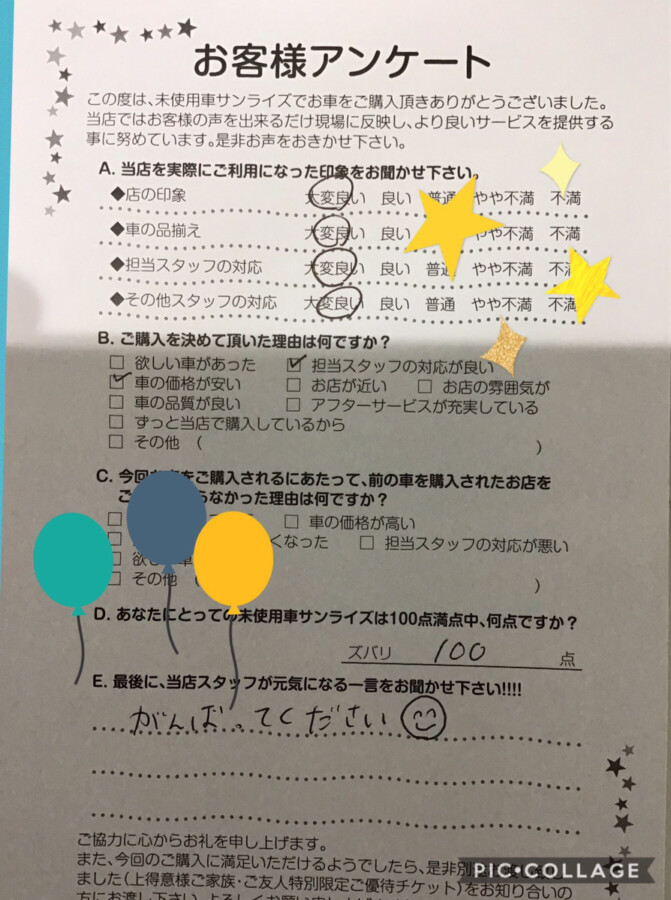 お客様アンケート
この度は、未使用車サンライズでお車をご購入頂きありがとうございました。
当店ではお客様の声を出来るだけ現場に反映し、より良いサービスを提供する
事に努めています。是非お声をおきかせ下さい。
A. 当店を実際にご利用になった印象をお聞かせ下さい。
◆店の印象 大変良い 良い 普通 やや不満 不満
◆車の品揃え 大変良い 良い やや不満 不満
◆担当スタッフの対応 大変良い 良い 普通 やや不満 不満
◆その他スタッフの対応 大変良い 良い 普通 やや不満 不満
B. ご購入を決めて頂いた理由は何ですか?
□ 欲しい車があった ☑ 担当スタッフの対応が良い
☑ 車の価格が安い □ お店が近い □ お店の雰囲気が
□ 車の品質が良い □ アフターサービスが充実している
□ ずっと当店で購入しているから
□ その他 ( )
C. 今回 をご購入されるにあたって、前の車を購入されたお店を
ご らなかった理由は何ですか?
□ □ 車の価格が高い
□ くなった □ 担当スタッフの対応が悪い
□ 欲し 車
□ その他 ( )
D. あなたにとっての未使用車サンライズは100点満点中、何点ですか?
ズバリ 100 点
E. 最後に、当店スタッフが元気になる一言をお聞かせ下さい!!!!
がんばってください
ご協力に心からお礼を申し上げます。
また、今回のご購入に満足いただけるようでしたら、是非別
ました(上得意様ご家族・ご友人特別限定ご優待チケット)をお知り合いの
方にお渡し下さい。
PIC COLLAGE